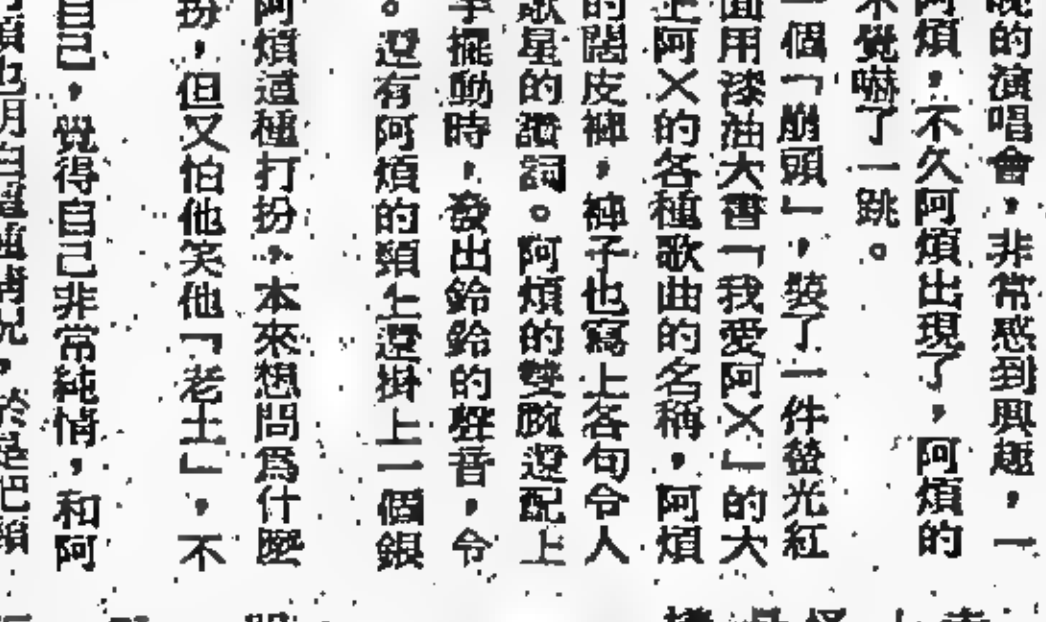 晚的演唱會，非常感到興趣，一
阿煩，不久阿煩出現了，阿煩的
不覺嚇了一跳。
一個「崩頭」，裝了一件螢光紅
面用漆油大書「我愛阿X」的大
上阿X的各種歌曲的名稱，阿煩
的闊皮褲，褲子也寫上各句令人
歌星的讚詞。阿煩的雙腕還配上
手擺動時，發出鈴鈴的聲音，令
。還有阿煩的頸上還掛上一個銀
阿煩這種打扮，本來想問爲什麼
扮，但又怕他笑他「老土」，不
自己，覺得自己非常純情，和阿
煩也明白這種情況，於是把頸